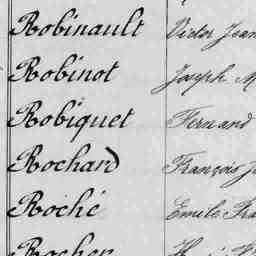 Robinault Victor Jean
Robinot Joseph M
Robiquet Fernand
Rochard François J
Roché Emile Fra
Rocher